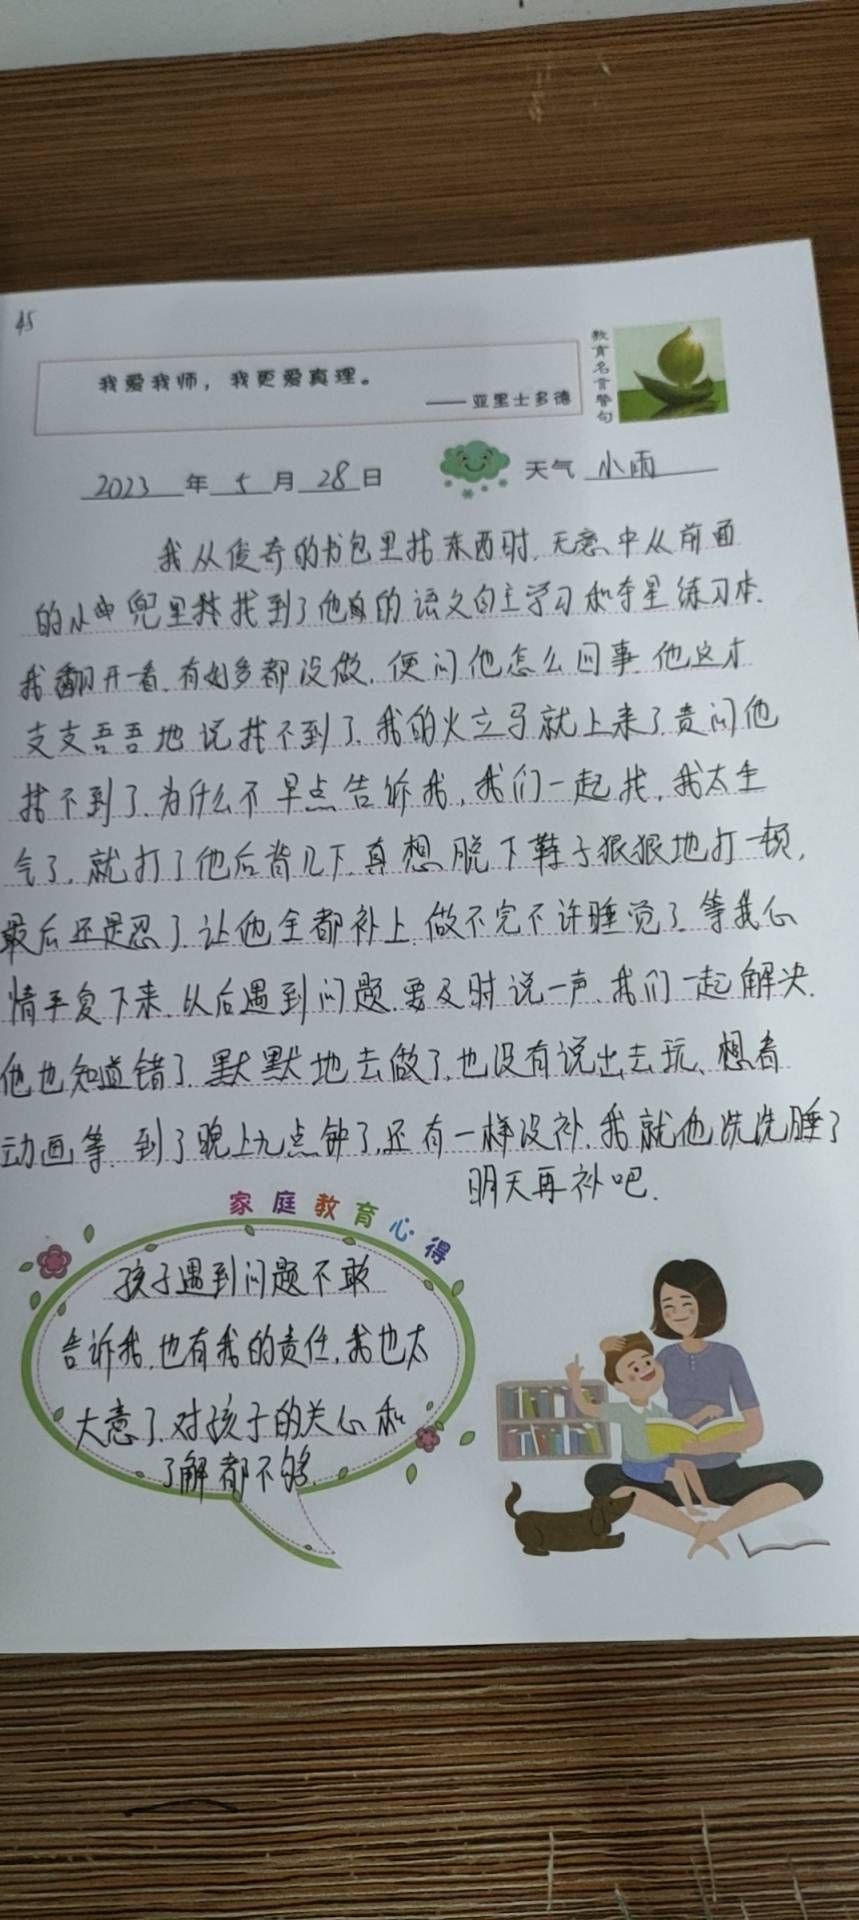 45
我爱我师，我更爱真理。
——亚里士多德
教育名言警句
2023年5月28日 天气 小雨
我从俊奇的书包里找东西时,无意中从前面
的小兜里找到了他的语文自主学习和夺星练习本.
我翻开一看,有好多都没做,便问他怎么回事,他这才
支支吾吾地说找不到了,我的火立马就上来了责问他
找不到了,为什么不早点告诉我,我们一起找,我太生
气了,就打了他后背几下,真想脱下鞋子狠狠地打一顿,
最后还是忍了,让他全都补上,做不完不许睡觉了,等我心
情平复下来,从后遇到问题,要及时说一声,我们一起解决.
他也知道错了,默默地去做了,也没有说出去玩、想看
动画等,到了晚上九点钟了,还有一样没补,我就他洗洗睡了
明天再补吧.
家庭教育心得
孩子遇到问题不敢
告诉我,也有我的责任,我也太
大意了,对孩子的关心和
了解都不够.